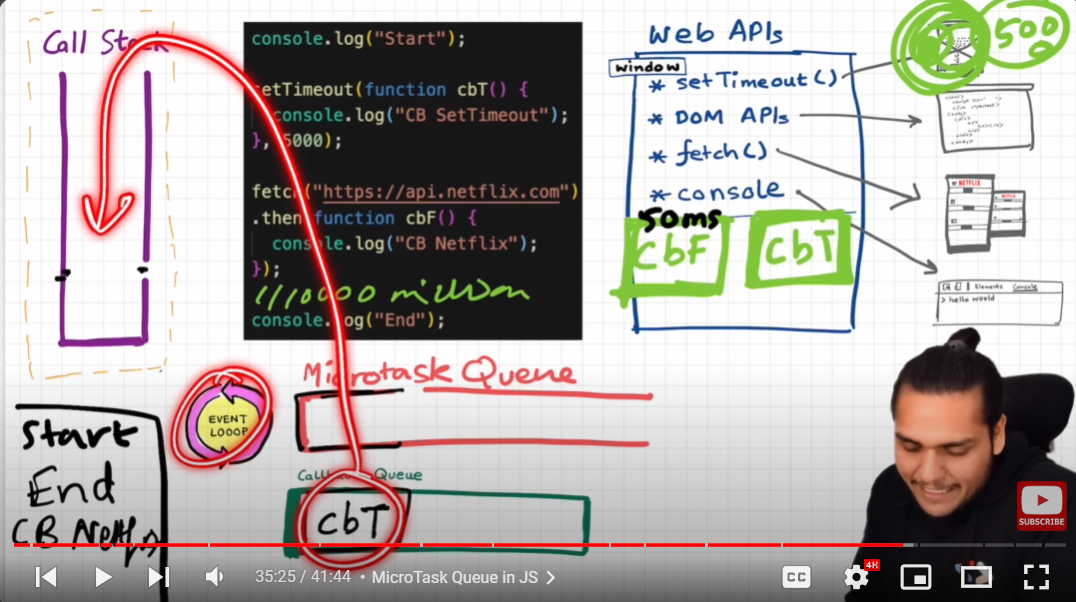 Call Stack
console.log("Start");
setTimeout(function cbT() {
console.log("CB SetTimeout");
}, 5000);
fetch("https://api.netflix.com")
.then(function cbF() {
console.log("CB Netflix");
});
10000 million
console.log("End");
Web APIs
window
* setTimeout()
* DOM APIs
* fetch()
* console
50ms
cbF
cbT
500
NETFLIX
Elements Console
> hello world
Microtask Queue
EVENT
LOOOP
Callback Queue
cbT
Start
End
CB Netflix
SUBSCRIBE
35:25 / 41:44 • MicroTask Queue in JS
CC
4K